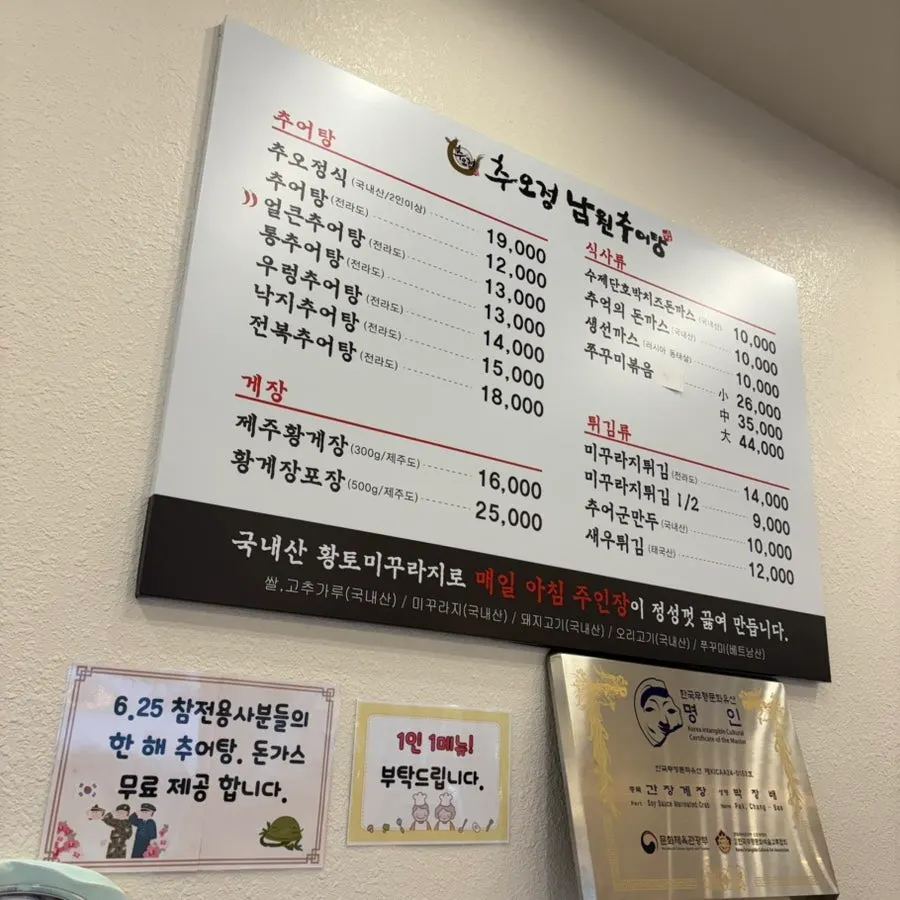 추오정 남원추어탕
추어탕
추오정식 (국내산/2인이상) 19,000
추어탕 (전라도) 12,000
얼큰추어탕 (전라도) 13,000
통추어탕 (전라도) 13,000
우렁추어탕 (전라도) 14,000
낙지추어탕 (전라도) 15,000
전복추어탕 (전라도) 18,000
게장
제주황게장 (300g/제주도) 16,000
황게장포장 (500g/제주도) 25,000
식사류
수제단호박치즈돈까스 (국내산) 10,000
추억의 돈까스 (국내산) 10,000
생선까스 (러시아 동태살) 10,000
쭈꾸미볶음 小 26,000
中 35,000
大 44,000
튀김류
미꾸라지튀김 (전라도) 14,000
미꾸라지튀김 1/2 9,000
추어군만두 (국내산) 10,000
새우튀김 (태국산) 12,000
국내산 황토미꾸라지로 매일 아침 주인장이 정성껏 끓여 만듭니다.
쌀,고추가루(국내산) / 미꾸라지(국내산) / 돼지고기(국내산) / 오리고기(국내산) / 쭈꾸미(베트남산)
6.25 참전용사분들의
한 해 추어탕, 돈가스
무료 제공 합니다.
1인 1메뉴!
부탁드립니다.
한국무형문화유산
명 인
Korea Intangible Cultural
Certificate of the Master
종목 간장게장 성명 박창배
Part Soy Sauce Marinated Crab Name Pak, Chang - Bae
문화체육관광부